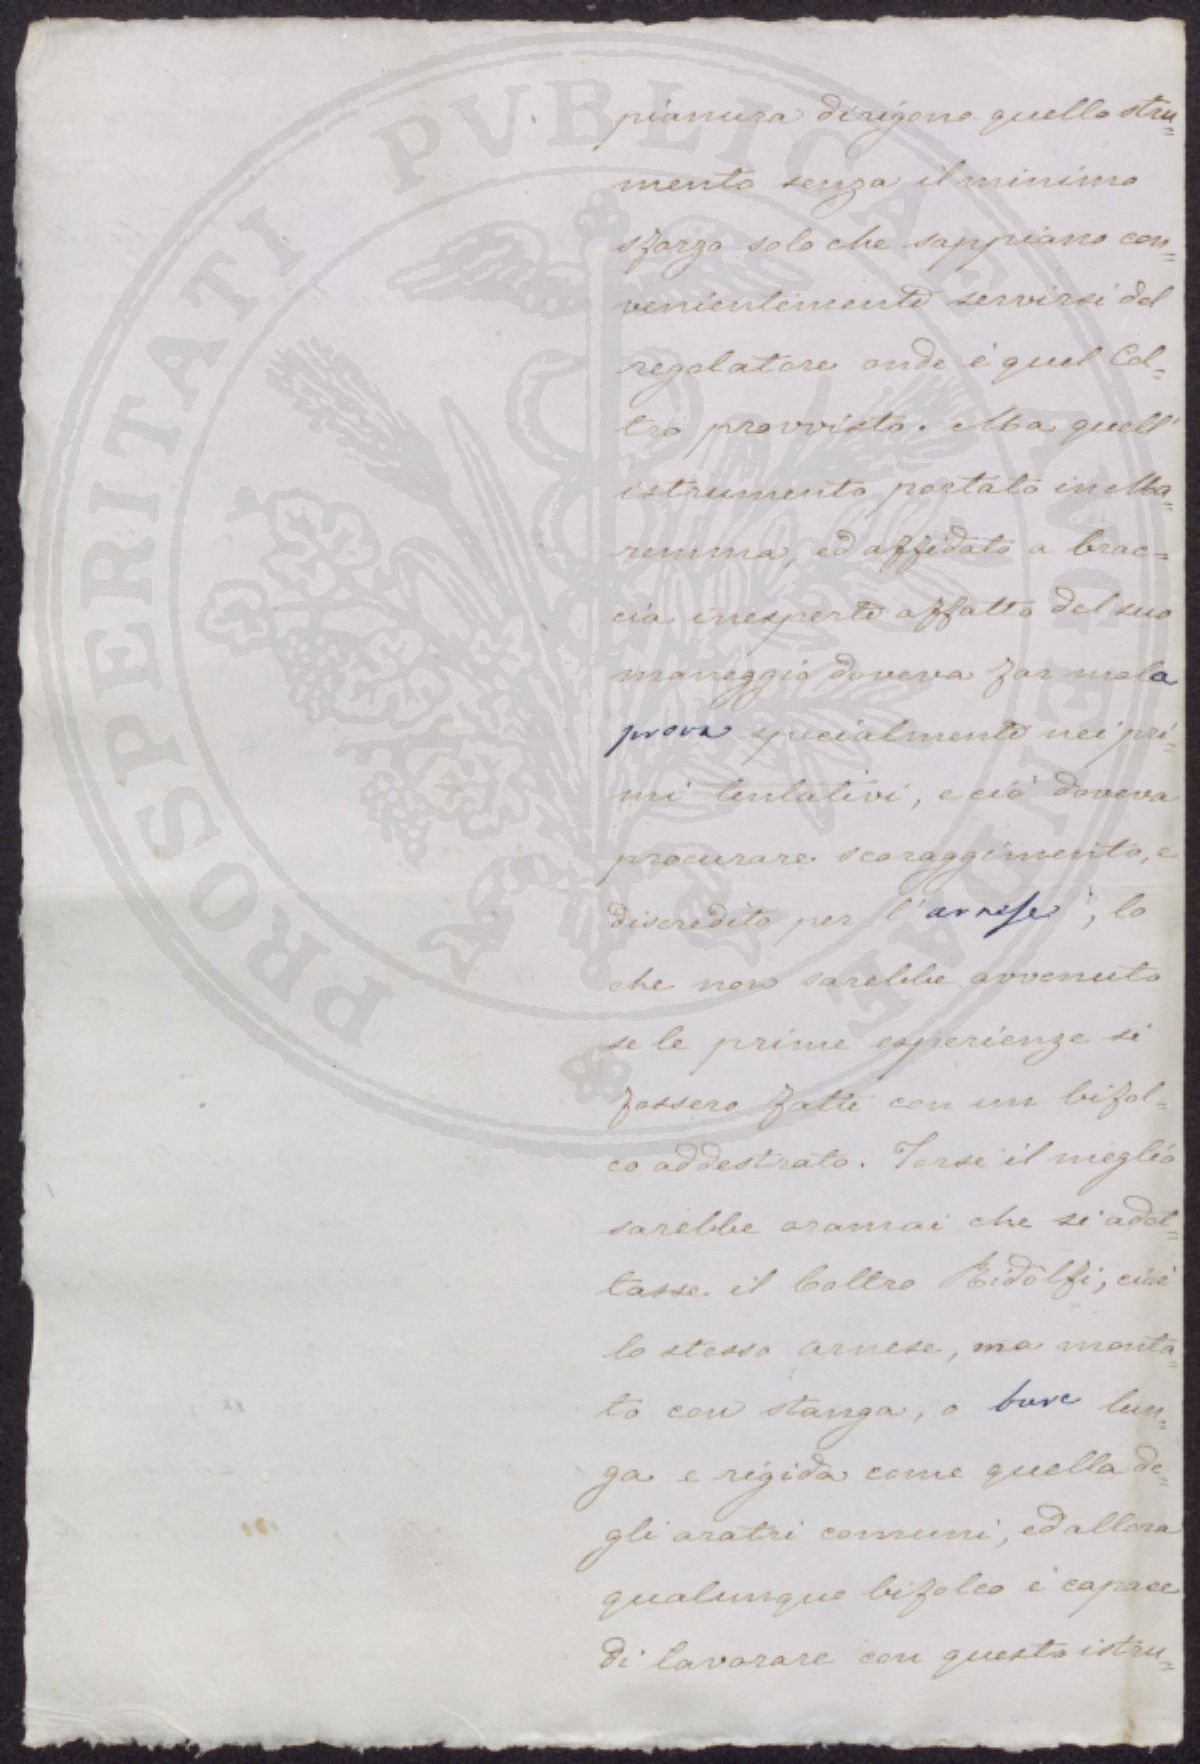 pianura dirigono quello stru=
mento senza il minimo
sforzo solo che sappiano con=
venientemente servirsi del
regolatore onde è quel Col=
tro provvisto. Ma quell'
istrumento portato in Ma=
remma, ed affidato a brac=
cia inesperte affatto del suo
maneggio doveva far mala
prova specialmente nei pri=
mi tentativi, e ciò doveva
procurare scoraggimento, e
discredito per l'arnese, lo
che non sarebbe avvenuto
se le prime esperienze si
fossero fatte con un bifol=
co addestrato. Forse il meglio
sarebbe oramai che si adot=
tasse il Coltro Ridolfi, cioè
lo stesso arnese, ma monta=
to con stanga, o bure lun=
ga e rigida come quella de=
gli aratri comuni, ed allora
qualunque bifolco è capace
di lavorare con questo istru=
PROSPERITATI PVBLICAE AVGENDAE